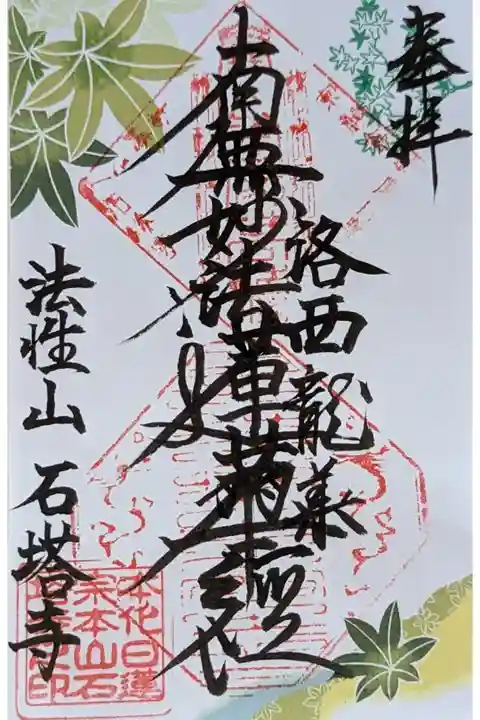 奉拝
洛西龍華
南無妙法蓮華経
法性山 石塔寺
本化日蓮
宗本山石
塔寺之印